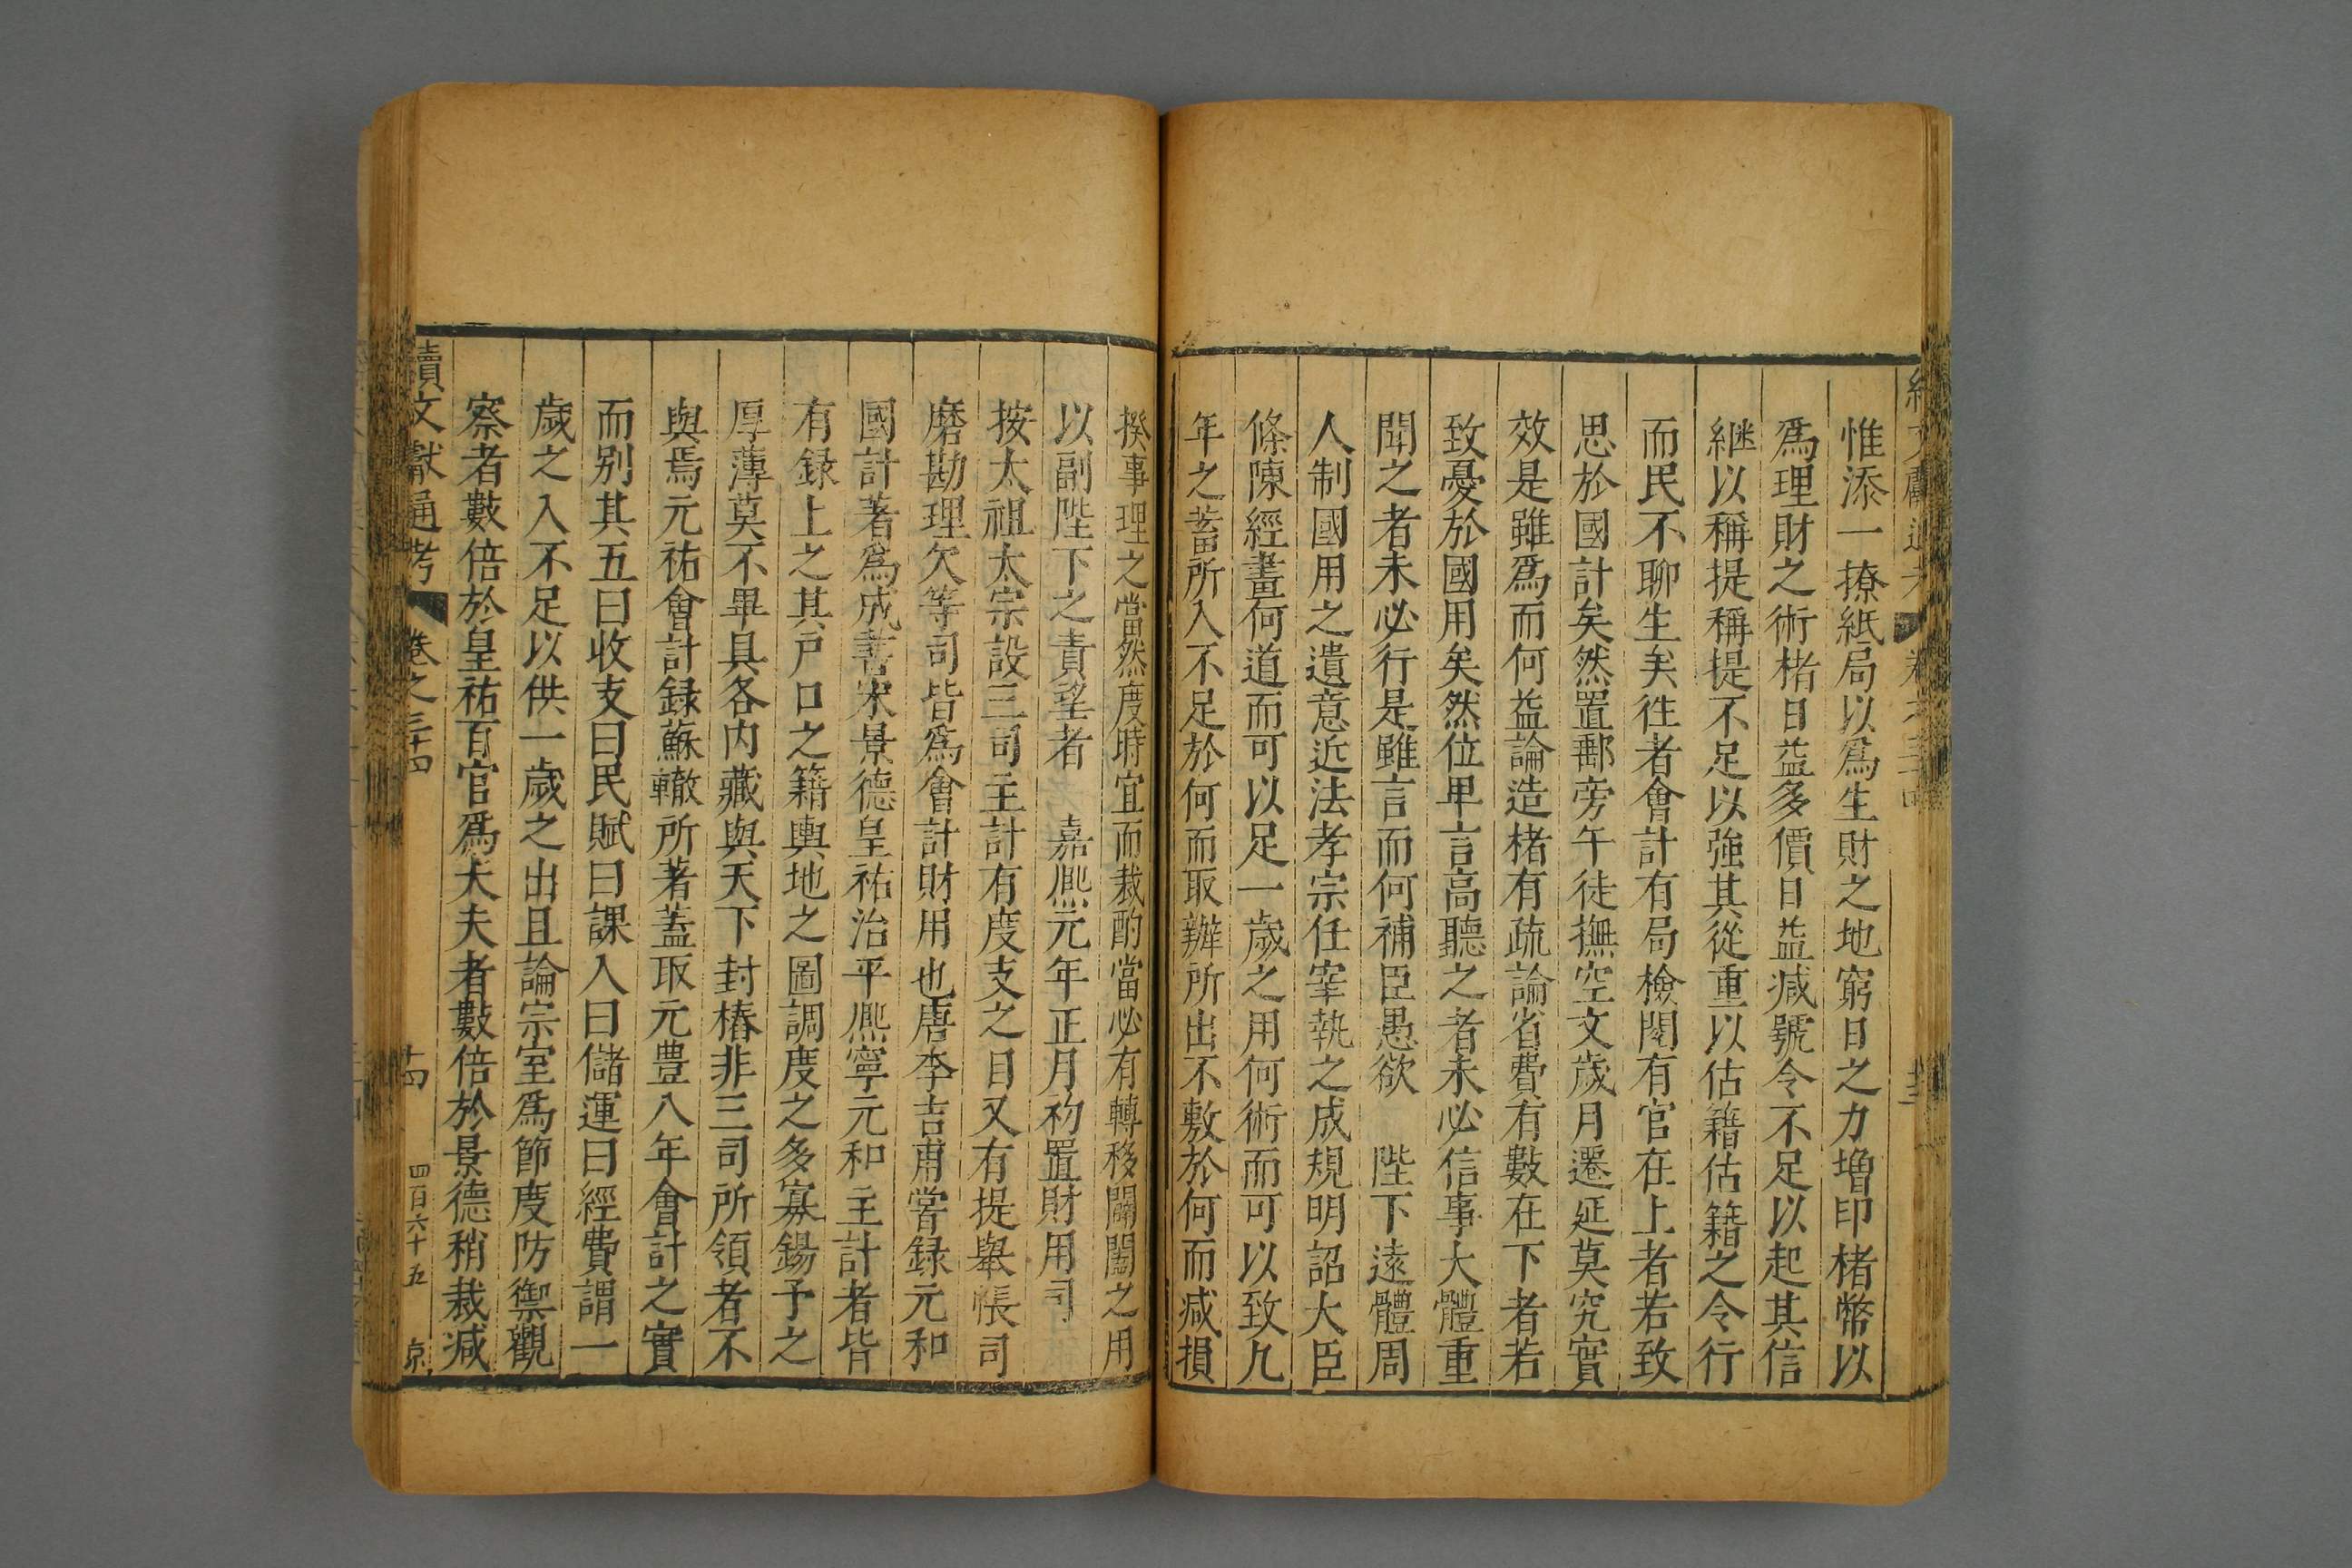 惟添一撩紙局以爲生財之地窮日之力增印楮幣以
爲理財之術楮日益多價日益减號令不足以起其信
継以稱提稱提不足以強其從重以估籍估籍之令行
而民不聊生矣徃者會計有局檢閱有官在上者若致
思於國計矣然置郵旁午徒撫空文歲月遷延莫究實
效是雖爲而何益論造楮有疏論省費有數在下者若
致憂於國用矣然位卑言高聽之者未必信事大體重
聞之者未必行是雖言而何補臣愚欲 陛下遠體周
人制國用之遺意近法孝宗任宰執之成規明詔大臣
條陳經畫何道而可以足一歲之用何術而可以致九
年之蓄所入不足於何而取辦所出不敷於何而减損
揆事理之當然度時宜而裁酌當必有轉移闔闢之用
以副陛下之責望者 嘉熈元年正月初置財用司
按太祖太宗設三司主計有度支之目又有提舉帳司
磨勘理欠等司皆爲會計財用也唐李吉甫嘗録元和
國計著爲成書宋景德皇祐治平熈寧元和主計者皆
有録上之其戸口之籍輿地之圖調度之多寡錫予之
厚薄莫不畢具各内藏與天下封樁非三司所領者不
與焉元祐會計録蘇轍所著蓋取元豊八年會計之實
而别其五曰收支曰民賦曰課入曰儲運曰經費謂一
歲之入不足以供一歲之出且論宗室爲節度防禦觀
察者數倍於皇祐百官爲大夫者數倍於景德稍裁减
續文獻通考 卷之三十四 十四 四百六十五 京